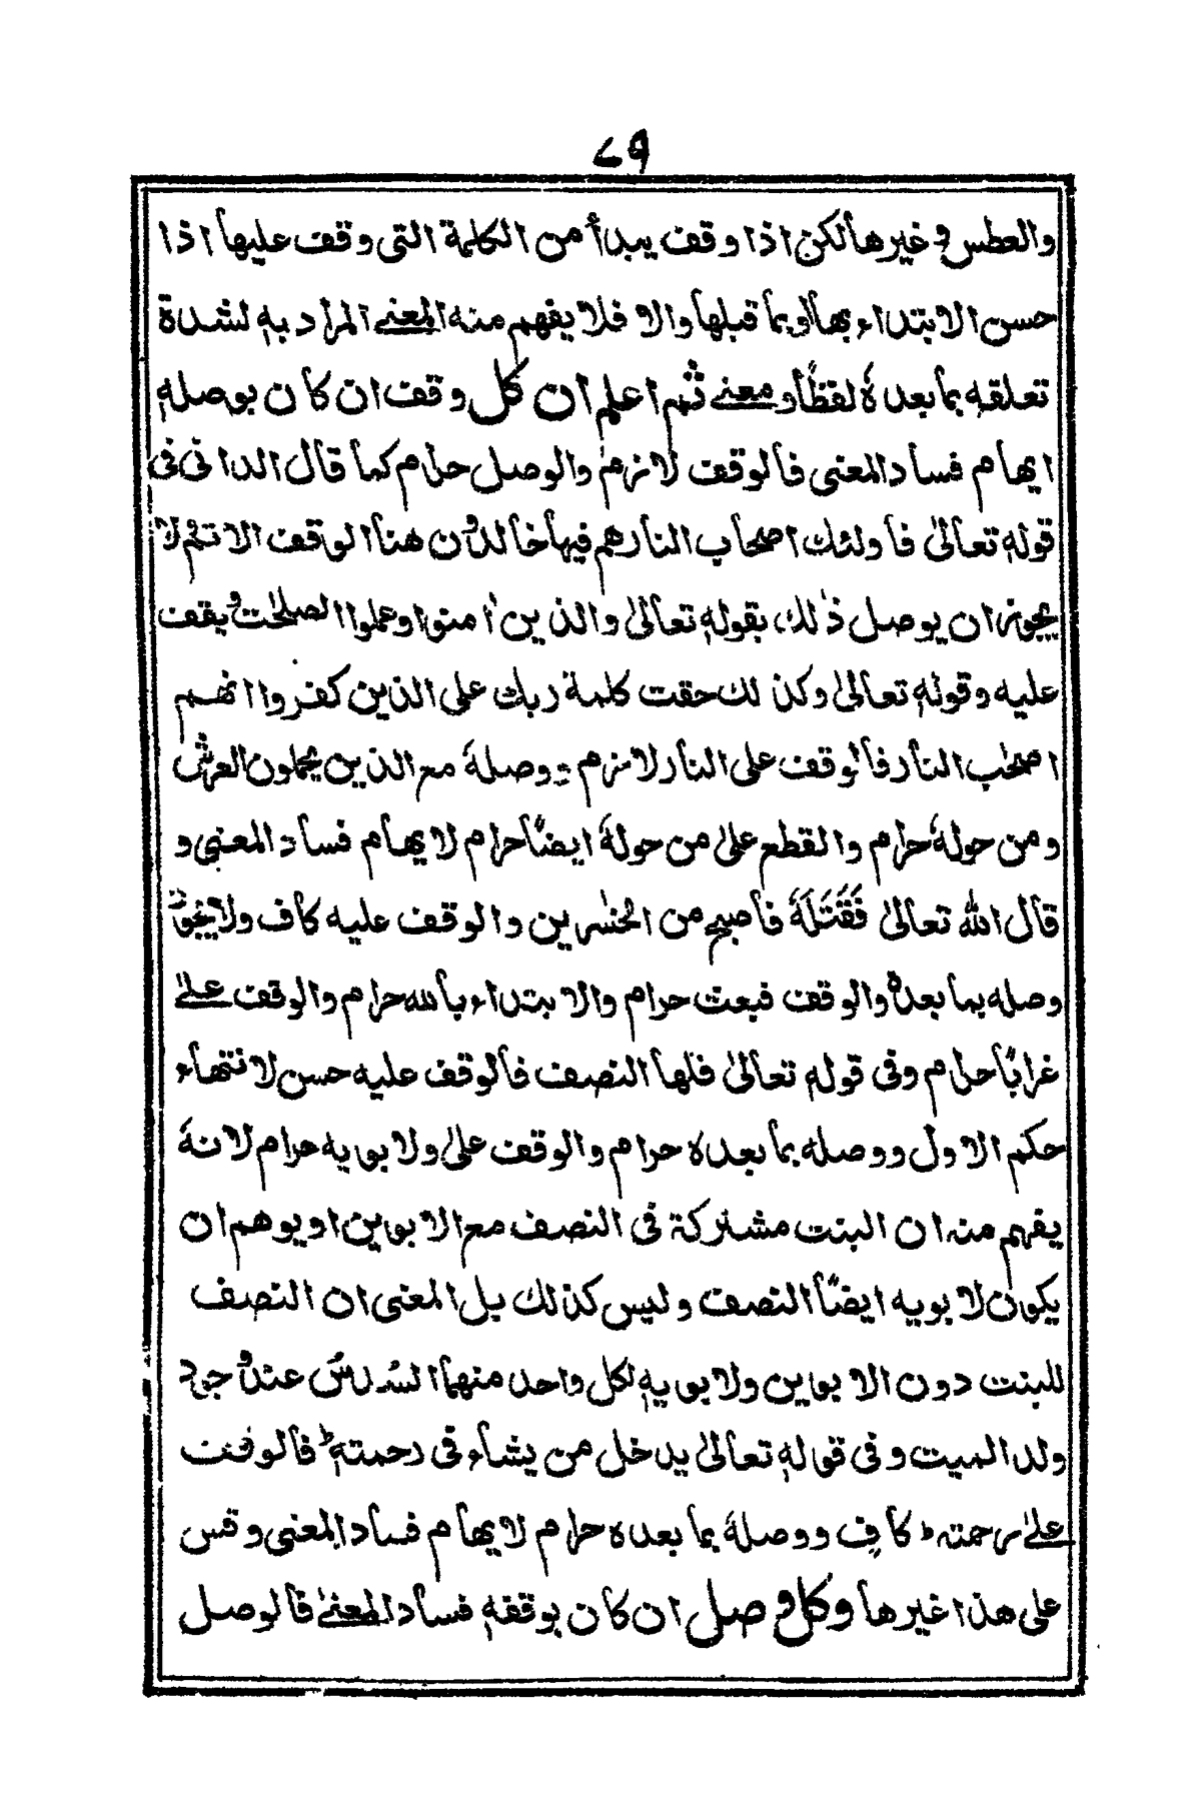 ٧٩
والعطس وغيرها لكن اذا وقف يبدأ من الكلمة التى وقف عليها اذا
حسن الابتداء بها او بما قبلها والا فلا يفهم منه المعنے المراد به لشدة
تعلقه بما بعدهٗ لفظًا ومعنے ثم اعلم ان كل وقف ان كان بوصلهٖ
ايهام فساد المعنى فالوقف لازم والوصل حرام كما قال الدانى فى
قولهٖ تعالىٰ فاولئك اصحاب النار هم فيها خالدون هنا الوقف الاتم لا
يجوز ان يوصل ذٰلك بقولهٖ تعالىٰ والذين اٰمنوا وعملوا الصلحٰت ويقف
عليه وقولهٖ تعالىٰ وكذلك حقت كلمة ربك على الذين كفروا انهم
اصحٰب النار فالوقف على النار لازم ووصلهٗ مع الذين يحملون العرش
ومن حولهٗ حرام والقطع علىٰ من حولهٗ ايضًا حرام لايهام فساد المعنى و
قال الله تعالىٰ فَقَتَلَهٗ فاصبح من الخٰسرين والوقف عليه كاف ولا يخفىٰ
وصله بما بعدهٗ والوقف فبعث حرام والابتداء بالله حرام والوقف علے
غرابًا حرام وفى قولهٖ تعالىٰ فلها النصف فالوقف عليه حسن لانتهاء
حكم الاول ووصله بما بعده حرام والوقف علىٰ ولابويه حرام لانهٗ
يفهم منه ان البنت مشتركة فى النصف مع الابوين او يوهم ان
يكون لابويه ايضًا النصف وليس كذلك بل المعنى ان النصف
للبنت دون الابوين ولابويهٖ لكل واحد منهما السُدسُ عند وجود
ولد الميت وفى قولهٖ تعالىٰ يدخل من يشاء فى رحمتهٖ ط فالوقف
علےٰ رحمته ط كافٍ ووصلهٗ بما بعده حرام لايهام فساد المعنى وقس
على هذا غيرها وكل وصل ان كان بوقفهٖ فساد المعنےٰ فالوصل